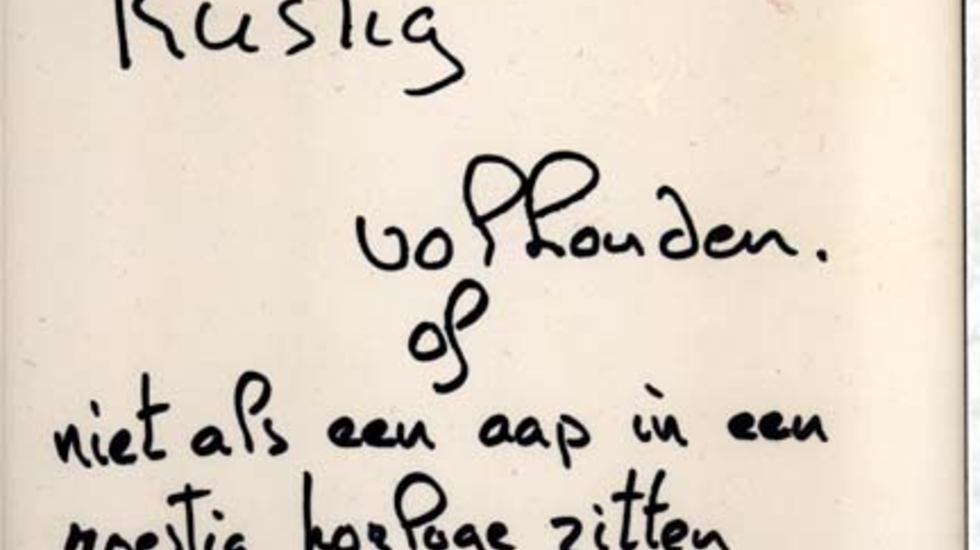 Rustig
volhouden.
of
niet als een aap in een
roestig horloge zitten